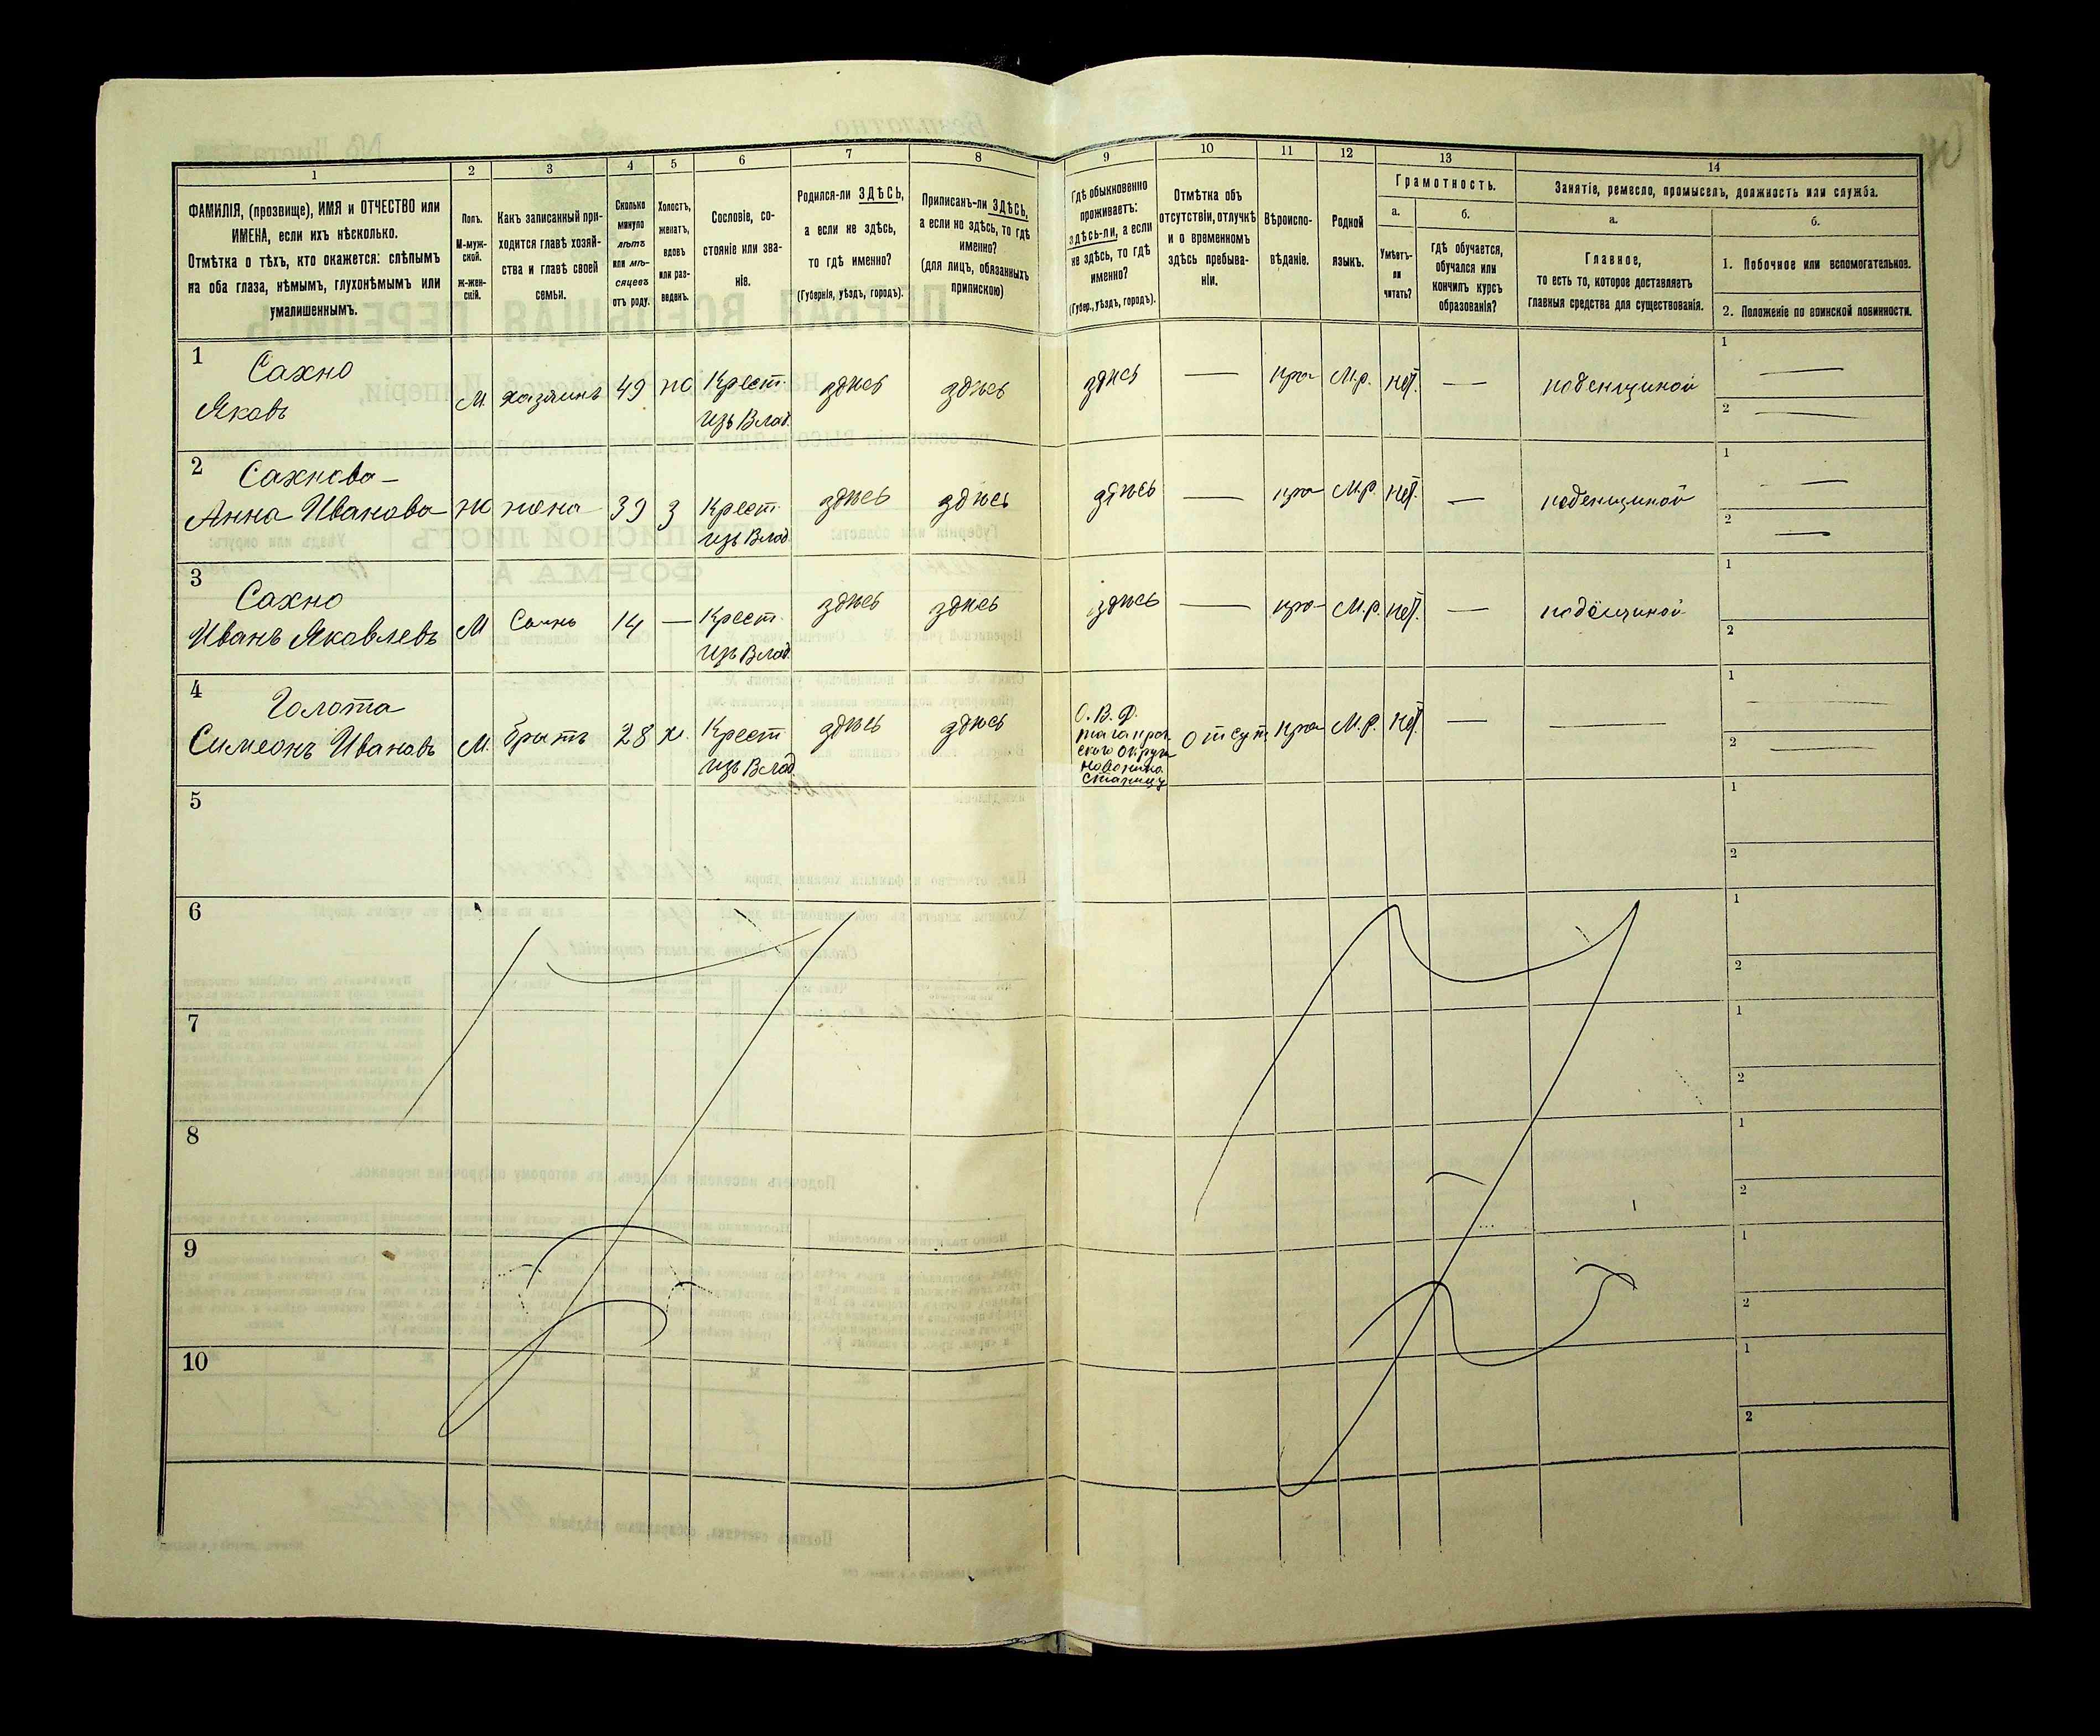 1 2 3 4 5 6 7 8 9 10 11 12 13 14
ФАМИЛІЯ, (прозвище), ИМЯ и ОТЧЕСТВО или
ИМЕНА, если ихъ нѣсколько.
Отмѣтка о тѣхъ, кто окажется: слѣпымъ
на оба глаза, нѣмымъ, глухонѣмымъ или
умалишеннымъ.
Полъ.
М-муж-
ской.
Ж-жен-
скій.
Какъ записанный при-
ходится главѣ хозяй-
ства и главѣ своей
семьи.
Сколько
минуло
лѣтъ
или мѣ-
сяцевъ
отъ роду.
Холостъ,
женатъ,
вдовъ
или раз-
веденъ.
Сословіе, со-
стояніе или зва-
ніе.
Родился-ли ЗДѢСЬ,
а если не здѣсь,
то гдѣ именно?
(Губернія, уѣздъ, городъ).
Приписанъ-ли ЗДѢСЬ,
а если не здѣсь, то гдѣ
именно?
(для лицъ, обязанныхъ
припискою)
Гдѣ обыкновенно
проживаетъ:
здѣсь-ли, а если
не здѣсь, то гдѣ
именно?
(Губер., уѣздъ, городъ).
Отмѣтка объ
отсутствіи, отлучкѣ
и о временномъ
здѣсь пребыва-
ніи.
Вѣроиспо-
вѣданіе.
Родной
языкъ.
Грамотность.
а.
Умѣетъ-
ли
читать?
б.
гдѣ обучается,
обучался или
кончилъ курсъ
образованія?
Занятіе, ремесло, промыселъ, должность или служба.
а.
Главное,
то есть то, которое доставляетъ
главныя средства для существованія.
б.
1. Побочное или вспомогательное.
2. Положеніе по воинской повинности.
1 Сахно
Яковъ М. хазяинъ 49 ж Крест. здѣсь здѣсь здѣсь — пра- М.р. нѣт. — поденщиной 1 —
изъ Влад. 2 —
2 Сахнова-
Анна Иванова ж жена 39 з Крест. здѣсь здѣсь здѣсь — пра- М.р. нѣт. — поденщиной 1 —
изъ Влад. 2 —
3 Сахно
Иванъ Яковлевъ М Сынъ 14 — Крест. здѣсь здѣсь здѣсь — пра- М.р. нѣт. — подёнщиной 1
изъ Влад. 2
4 Голота
Симеонъ Ивановъ М. братъ 28 х. Крест здѣсь здѣсь О. В. Д. отсут. пра- М.р. нѣт. — — 1 —
изъ Влад. 2 —
таганрог
скаго округа
станицу
5 1
2
6 1
2
7 1
2
8 1
2
9 1
2
10 1
2